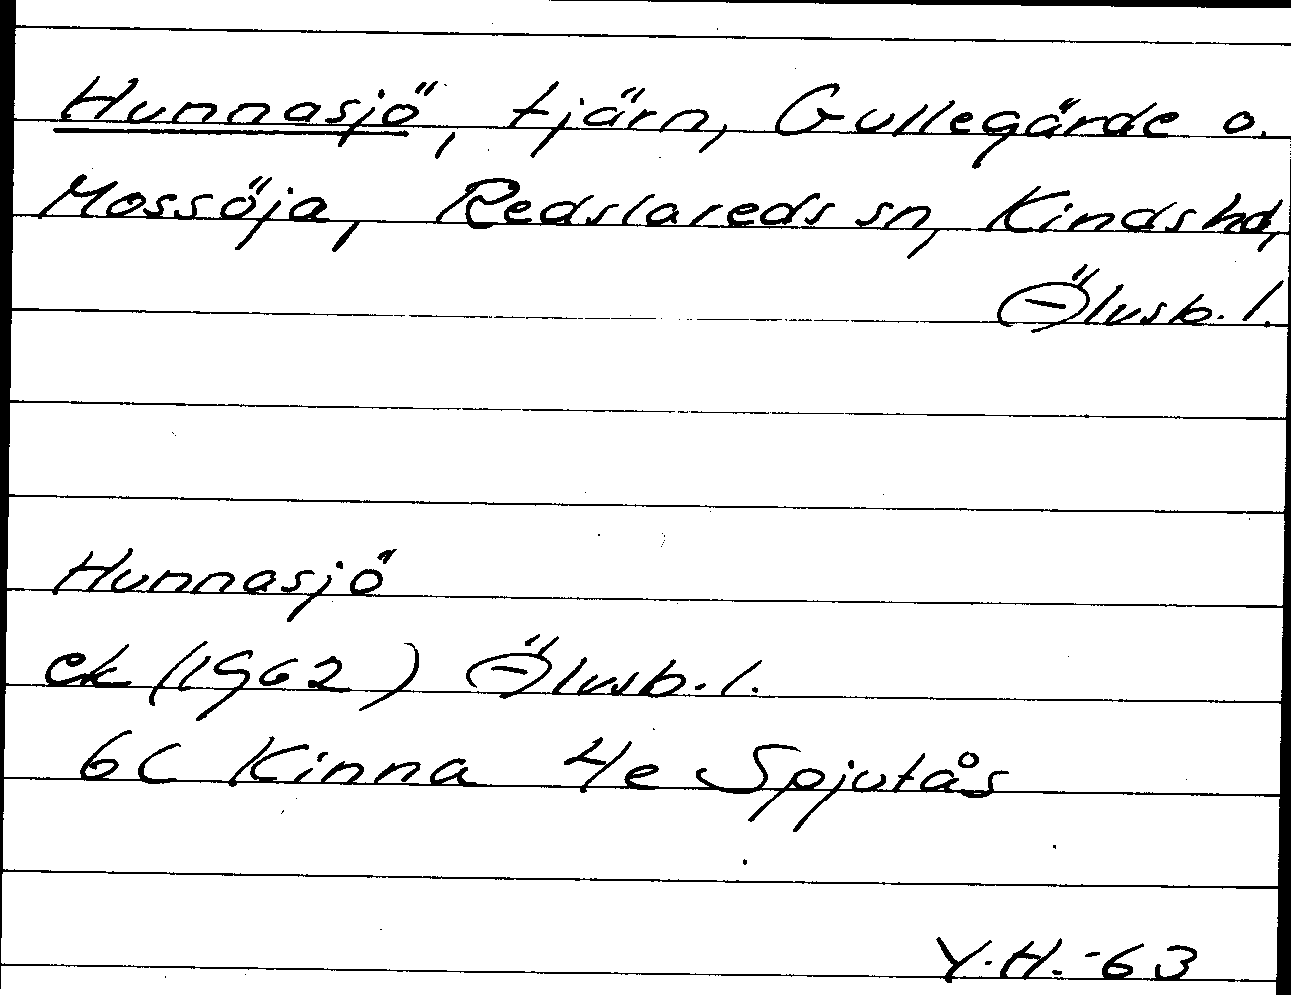 Hunnasjö, tjärn, Gullegärde o.
Mossöja, Redslareds sn, Kinds hd,
Älvsb. l.
Hunnasjö
ek (1962) Älvsb. l.
6C Kinna 4e Spjutås
Y.H. -63